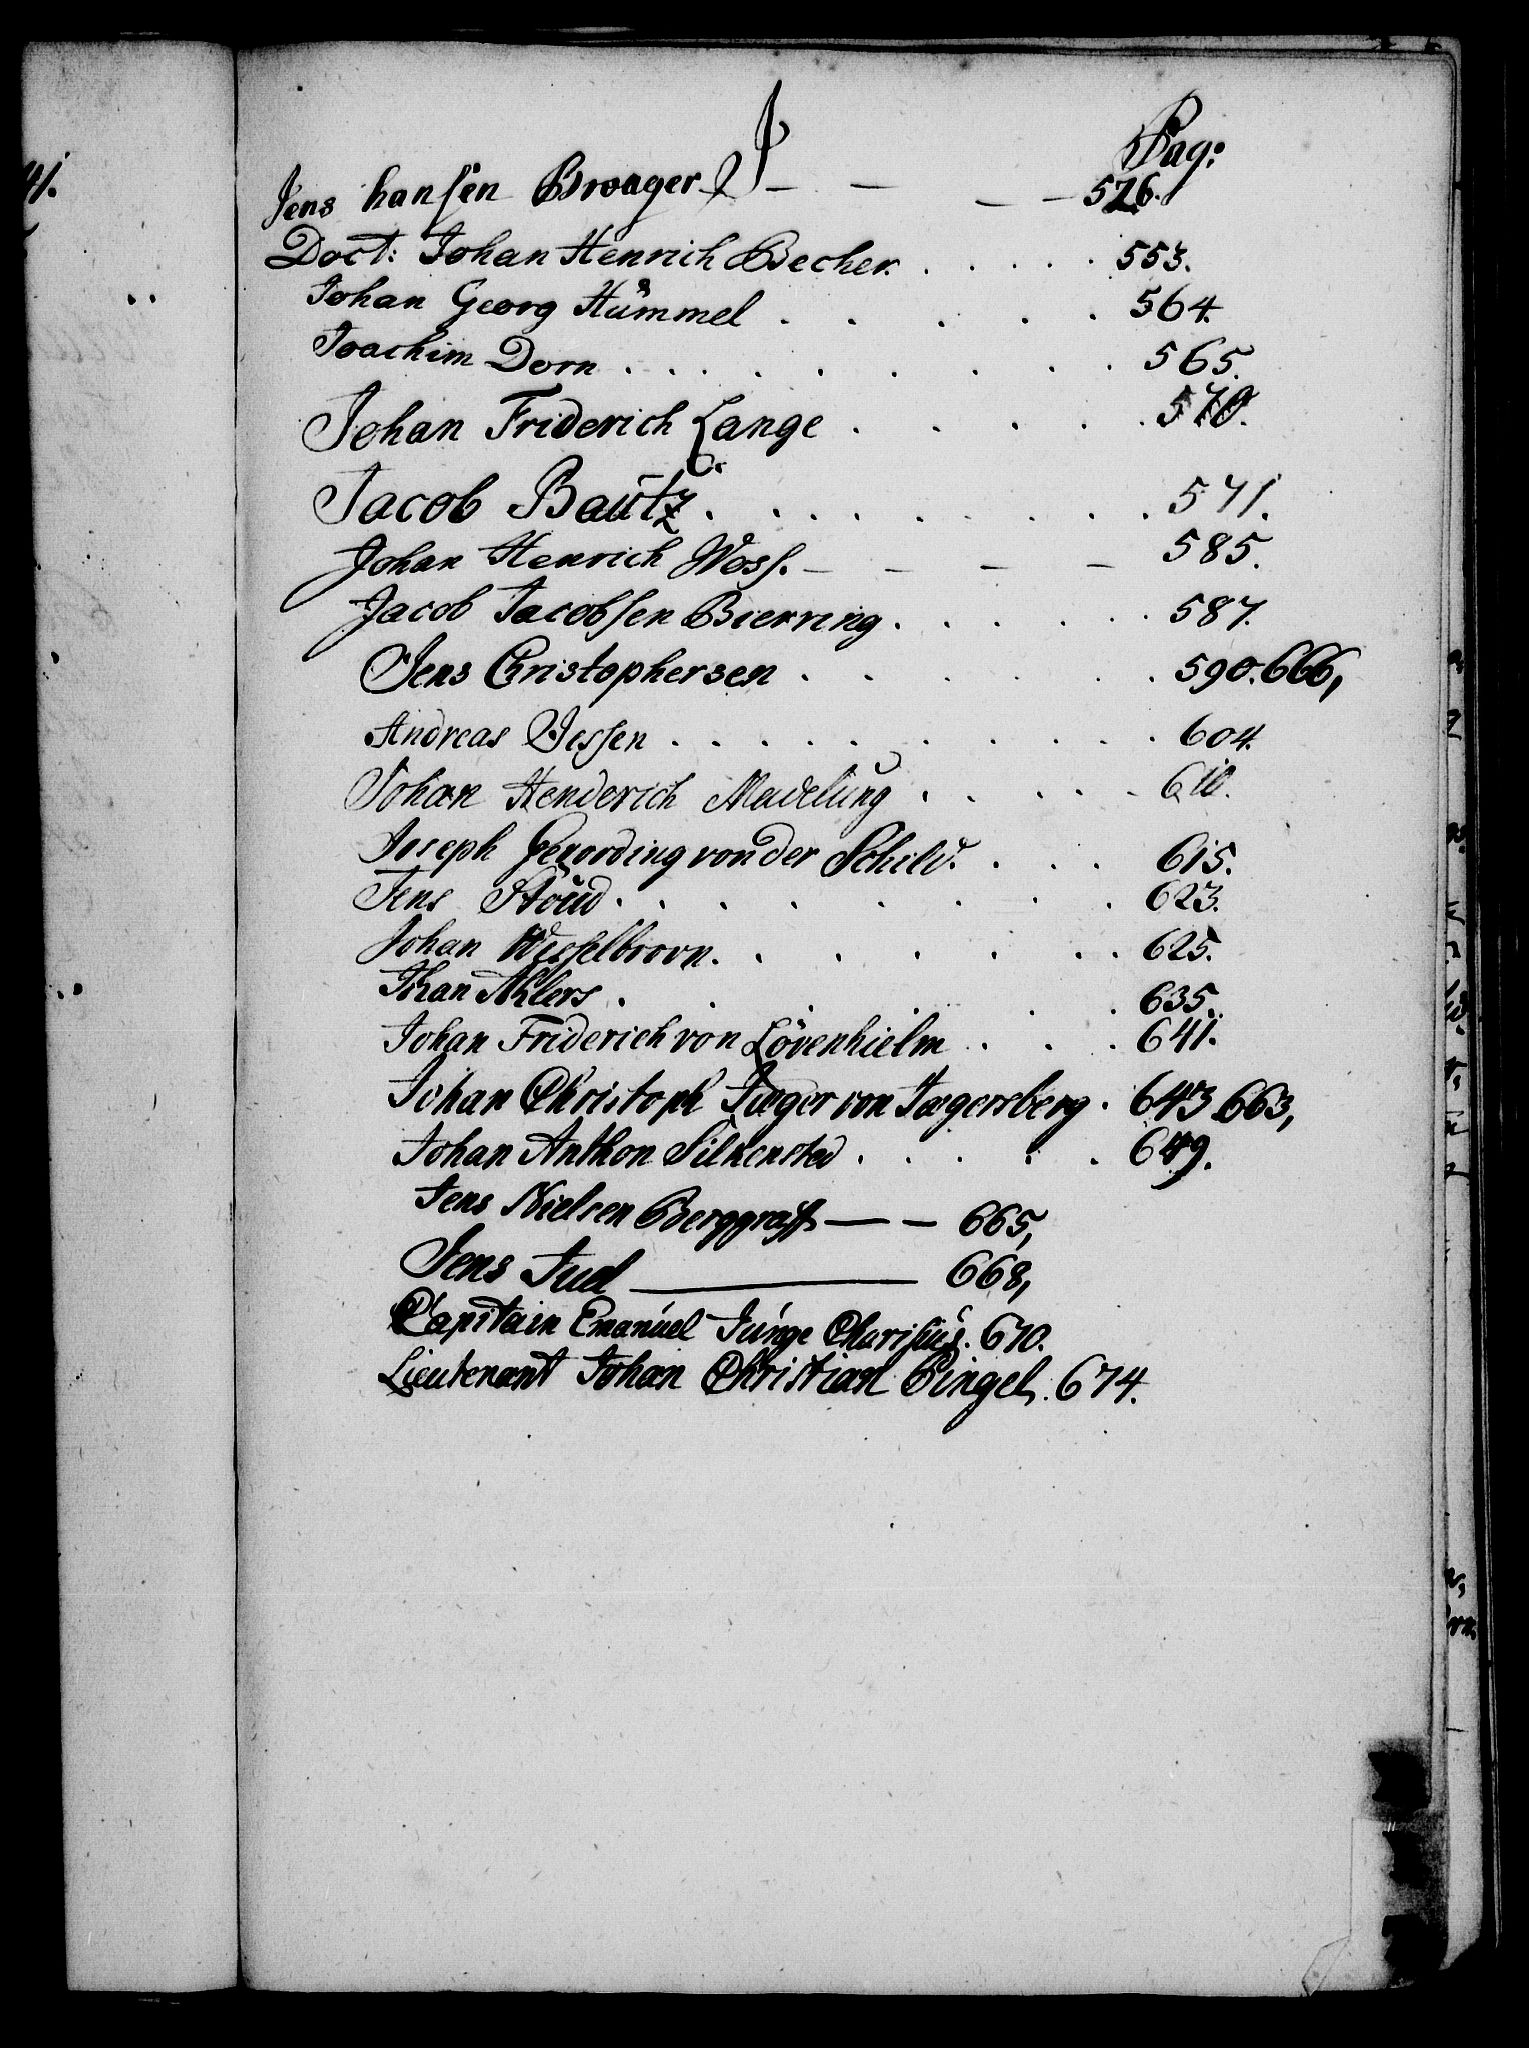 J Pag:
Jens hansen Broager — — — — 526.
Doct: Johan Henrich Becher . . . . . 553.
Johan Georg Hummel . . . . . 564.
Joachim Dorn . . . . . . . . . 565.
Johan Friderich Lange . . . . . 570.
Jacob Bautz . . . . . . . . 571.
Johan Henrich Woss. — — — — 585.
Jacob Jacobsen Bierring . . . . . . 587.
Jens Christophersen . . . . . . 590. 666,
Andreas Jessen . . . . . . . . . 604.
Johan Henderich Madelung . . . . . 610.
Joseph von der Schild. . . . 615.
Jens Stoud . . . . . . . . 623.
Johan Wesselbrovn. . . . . . . 625.
Johan Ahlers . . . . . . 635.
Johan Friderich von Lövenhielm . . . 641.
Johan Christoph Jæger von Jægersberg . 643 663,
Johan Anthon Silkensted . . . . . 649.
Jens Nielsen Berggraff — — 665,
Jens Juel — 668,
Capitain Emanuel Junge Charisius. 670.
Lieutenant Johan Christian Pingel. 674.